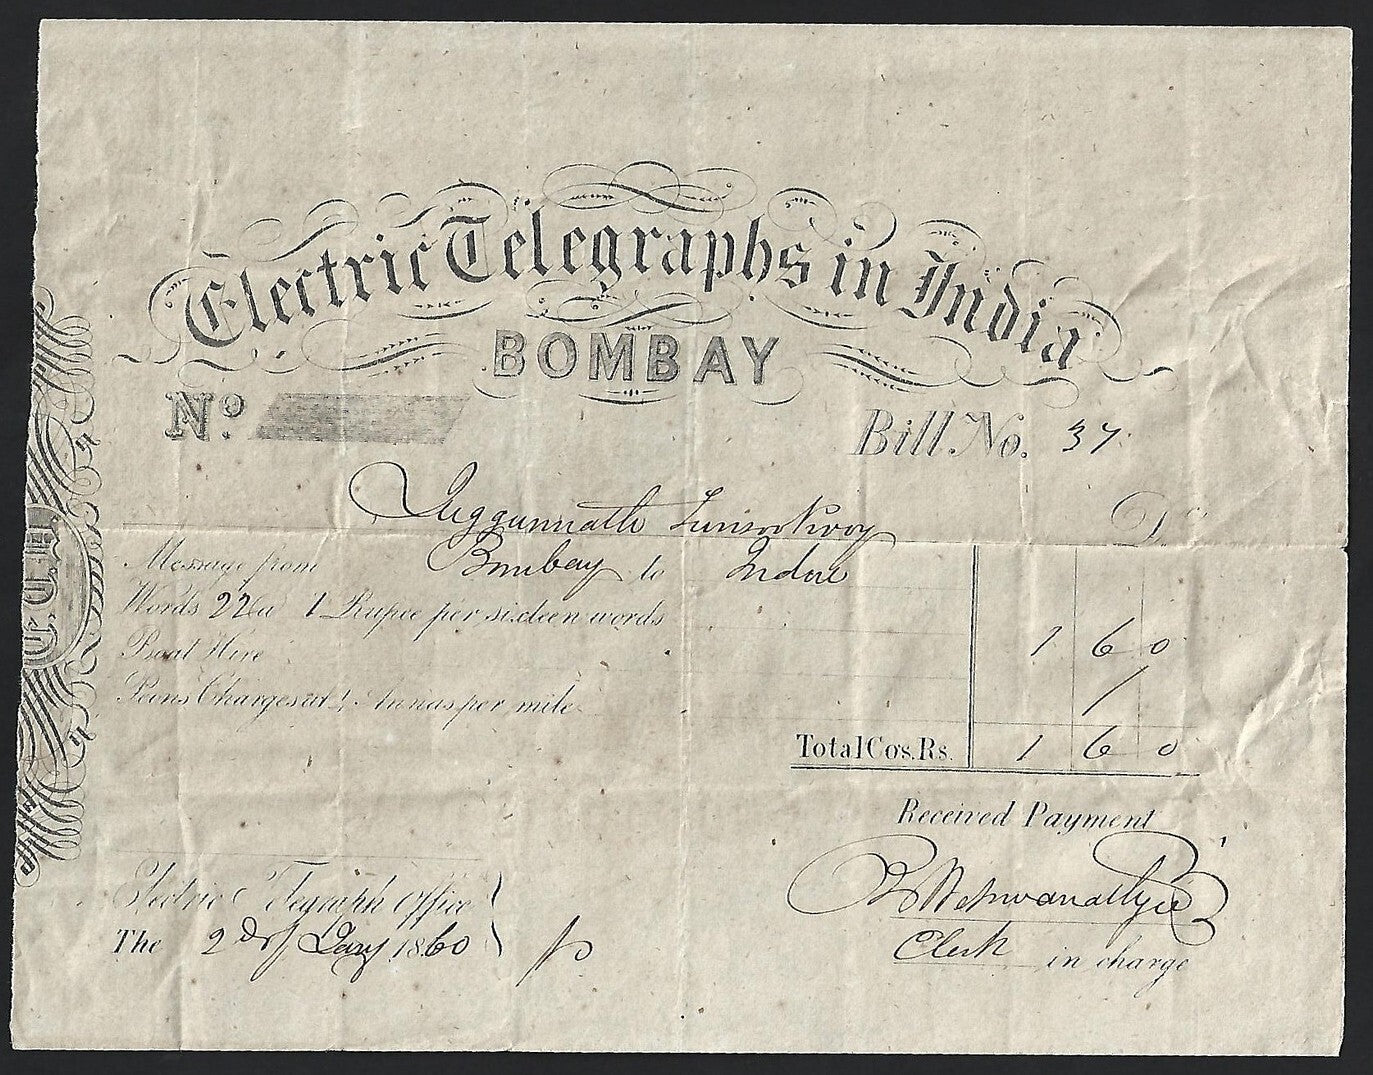 Electric Telegraphs in India
BOMBAY
No.
Bill No. 37
Juggunnath
Dr
Message from Bombay to Indore
Words 22 at 1 Rupee per sixteen words 1 6 0
Boat Hire
Peons Charges at Annas per mile
Total Co's. Rs. 1 6 0
Received Payment
Electric Telegraph Office
The 2d Jany 1860
Clerk in charge